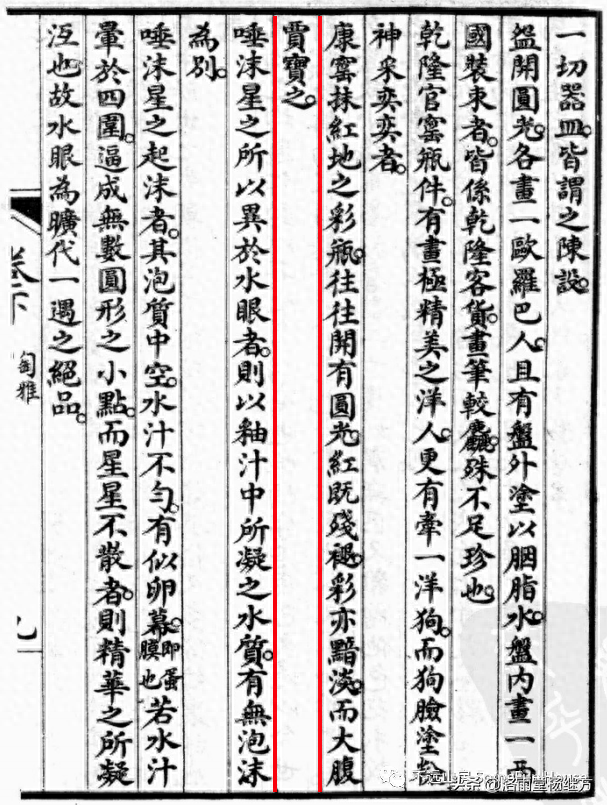 一切器皿。皆謂之陳設。
盌開圓光。各畫一歐羅巴人。且有盤外塗以胭脂水。盤內畫一西
國裝束者。皆係乾隆客貨。畫筆較麤。殊不足珍也。
乾隆官窰瓶件。有畫極精美之洋人。更有牽一洋狗。而狗臉塗
神采奕奕者。
康窰抹紅地之彩瓶。往往開有圓光。紅既殘褪。彩亦黯淡。而大腹
賈寶之。
唾沫星之所以異於水眼者。則以釉汁中所凝之水質。有無泡沫
為別。
唾沫星之起沫者。其泡質中空。水汁不勻。有似卵幕。即蛋膜也若水汁
暈於四圍。逼成無數圓形之小點。而星星不散者。則精華之所凝
沍也。故水眼為曠代一遇之絕品。
卷下 匋雅